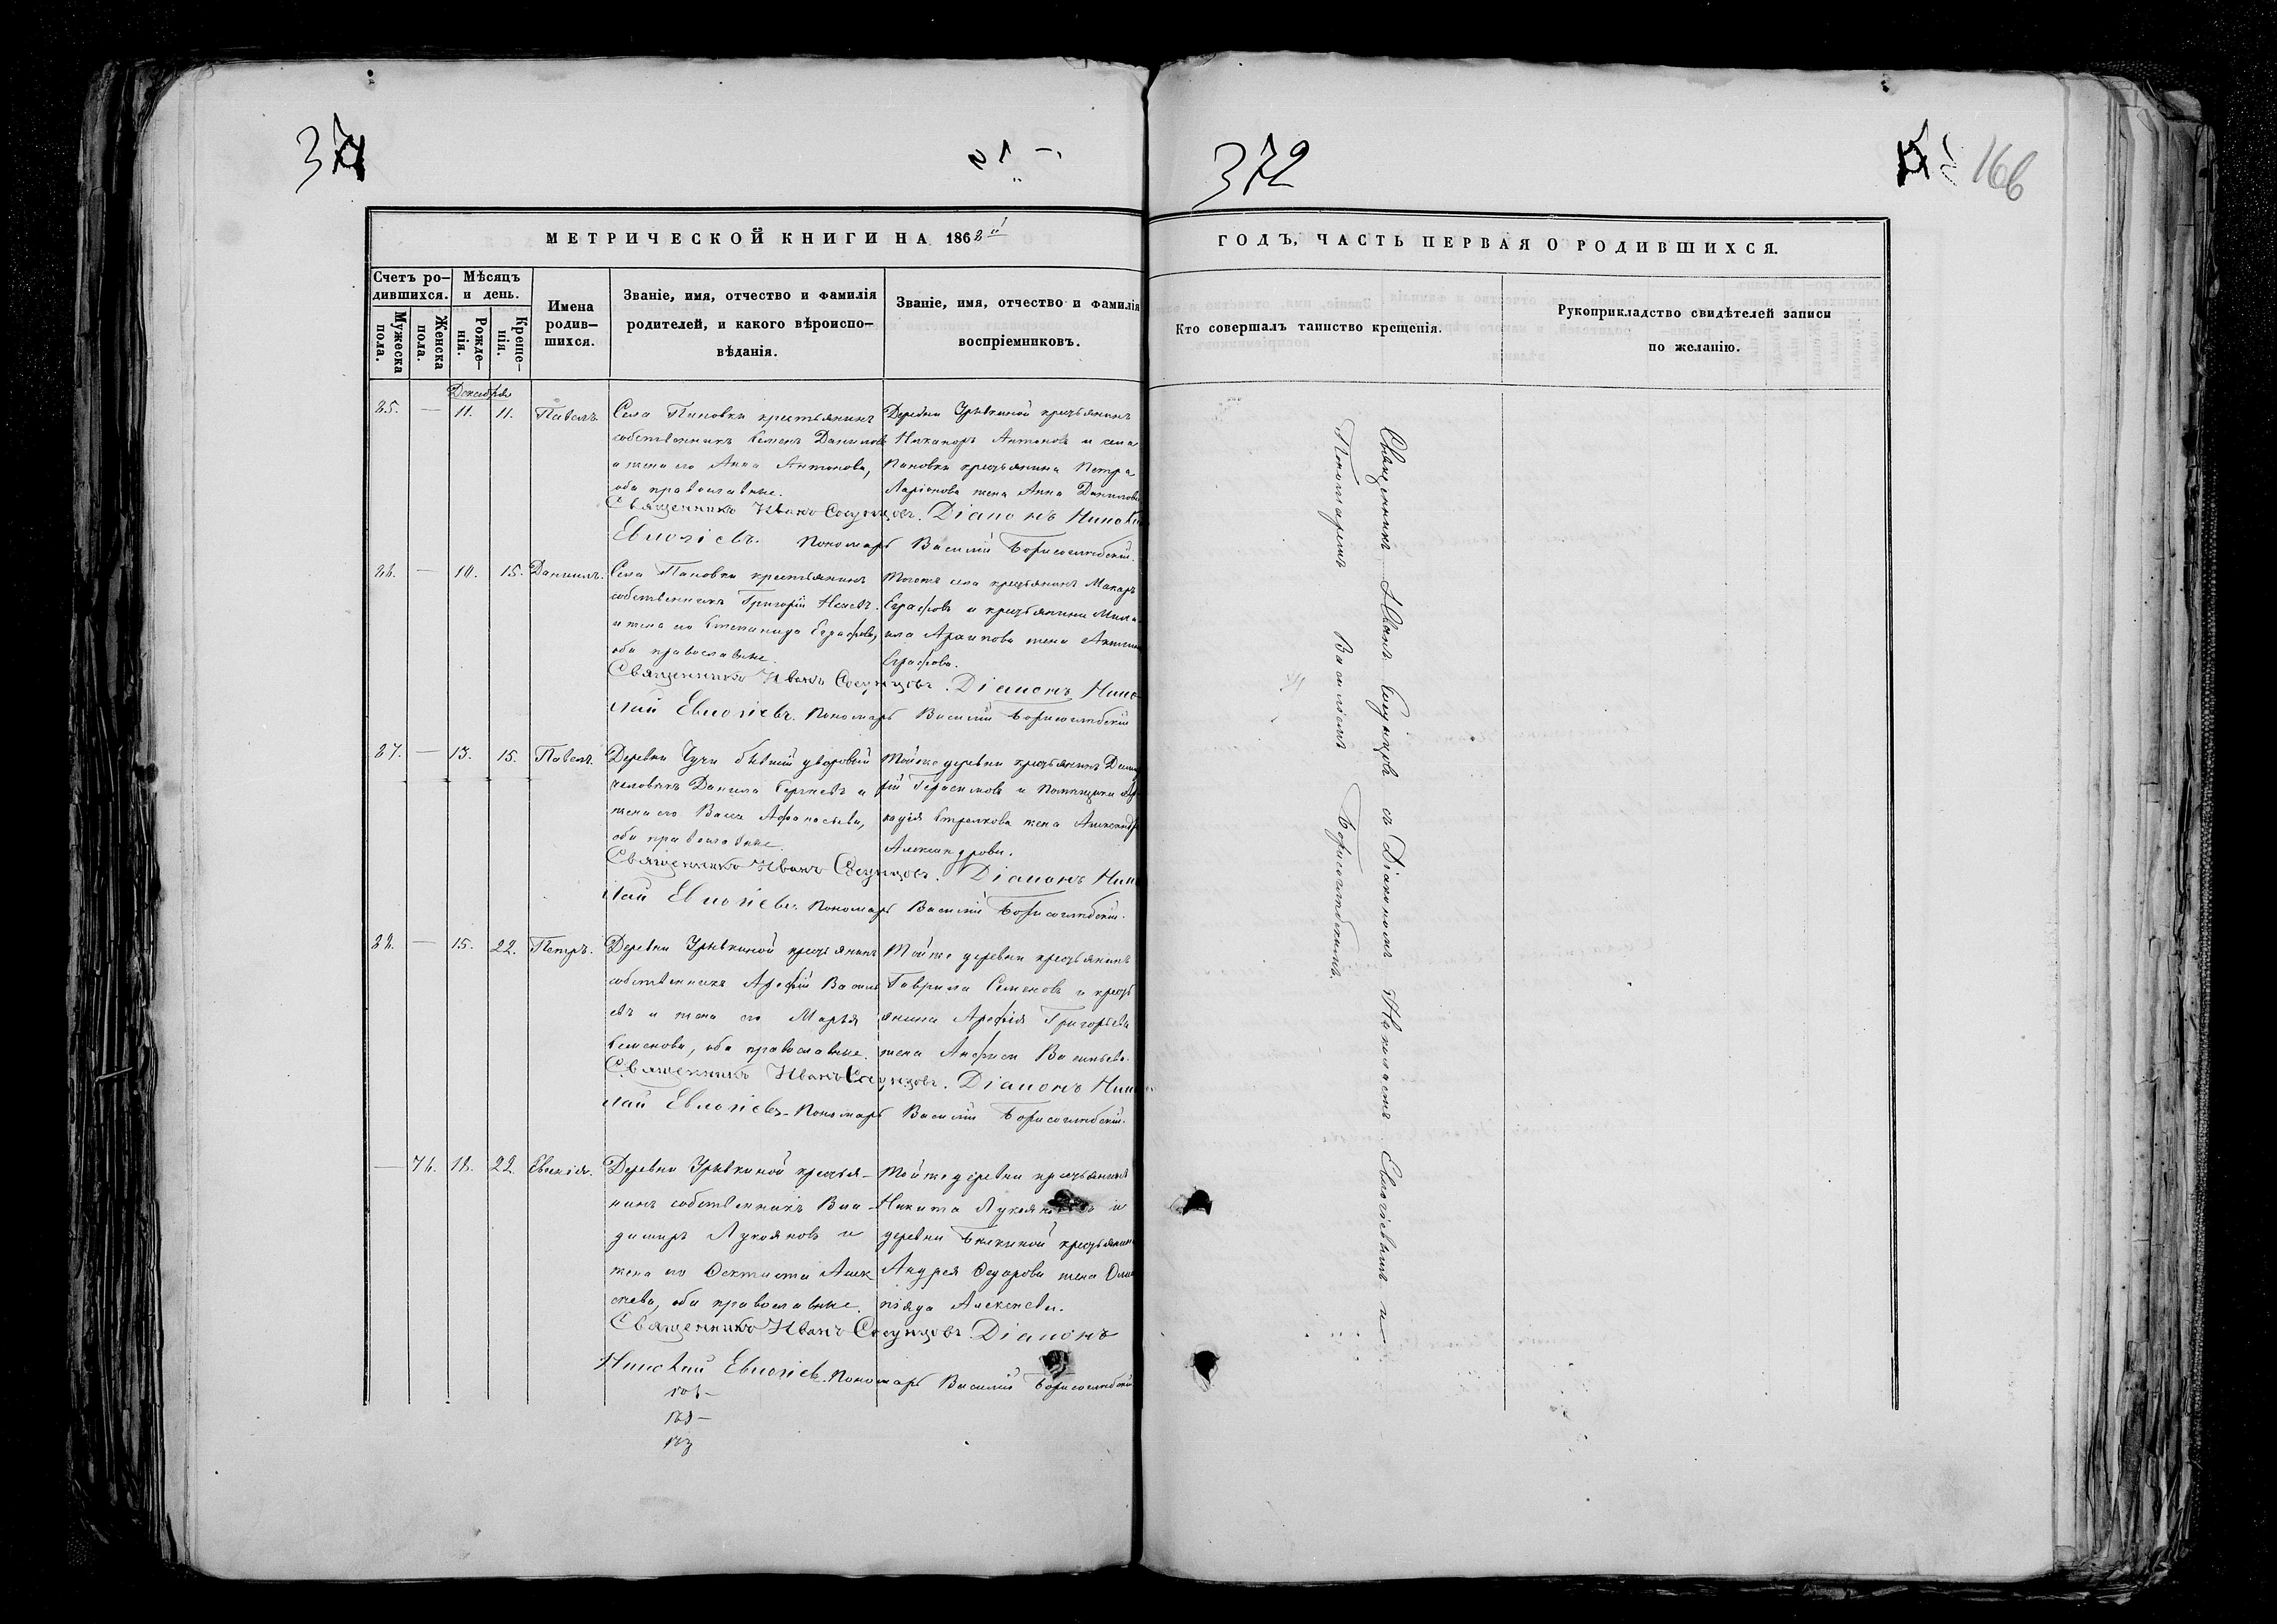 372
166
МЕТРИЧЕСКОЙ КНИГИ НА 1868й
ГОДЪ, ЧАСТЬ ПЕРВАЯ О РОДИВШИХСЯ.
Счетъ ро-
дившихся.
Мужеска
пола.
Женска
пола.
Мѣсяцъ
и день.
Рожде-
нія.
Креще-
нія.
Имена
родив-
шихся.
Званіе, имя, отчество и фамилія
родителей, и какого вѣроиспо-
вѣданія.
Званіе, имя, отчество и фамилія
воспріемниковъ.
Кто совершалъ таинство крещенія.
Рукоприкладство свидѣтелей записи
по желанію.
Декабря
85. — 11. 11. Павелъ.
Села Пановки крестьянинъ
собственникъ Семенъ Даниловъ
и жена его Анна Антонова,
оба православные.
Деревни Урывкиной крестьянинъ
Никаноръ Антоновъ и села
Пановки крестьянина Петра
Ларіонова жена Анна Данилова
Священникъ Иванъ Согунцовъ. Діаконъ Никол
Евлогіевъ. Пономарь Василій Борисоглѣбскій.
86. — 14. 15. Даніилъ.
Села Пановки крестьянинъ
собственникъ Григорій Исаевъ
и жена его Степанида Еграфова,
оба православные.
Тогоже села крестьянинъ Макаръ
Еграфовъ и крестьянина Миха-
ила Архипова жена
Еграфова.
Священникъ Иванъ Согунцовъ. Діаконъ Нико-
лай Евлогіевъ. Пономарь Василій Борисоглѣбскій
87. — 13. 15. Павелъ.
Деревни бывшій дворовый
человѣкъ Данила Сергѣевъ и
жена его Васса Афанасьева,
оба православные.
Тойже деревни крестьянинъ Димит
рій Герасимовъ и помѣщика Ар-
кадія Стрѣлкова жена Александра
Александрова.
Священникъ Иванъ Согунцовъ. Діаконъ Нико
лай Евлогіевъ. Пономарь Василій Борисоглѣбскій.
88. — 15. 22. Петръ.
Деревни Урывкиной крестьянинъ
собственникъ Арефій Василь
евъ и жена его Марья
Семенова, оба православные.
Тойже деревни крестьянинъ
Гаврила Семеновъ и кресть
янина Арефія Григорьева
жена Анфиса Васильева.
Священникъ Иванъ Согунцовъ. Діаконъ Нико
лай Евлогіевъ. Пономарь Василій Борисоглѣбскій.
— 76. 18. 22. Евгенія.
Деревни Урывкиной крестья-
нинъ собственникъ Вла-
димиръ Лукояновъ и
жена его Феktиста Алек
сѣева, оба православные.
Тойже деревни крестьянинъ
Никита и
деревни крестьянина
Андрея Федорова жена Олим
піяда Алексѣева.
Священникъ Иванъ Согунцовъ. Діаконъ
Николай Евлогіевъ. Пономарь Василій Борисоглѣбскій
Священникъ Иванъ Согунцовъ съ Діакономъ Николаемъ Евлогіевымъ и
Пономаремъ Василіемъ Борисоглѣбскимъ.